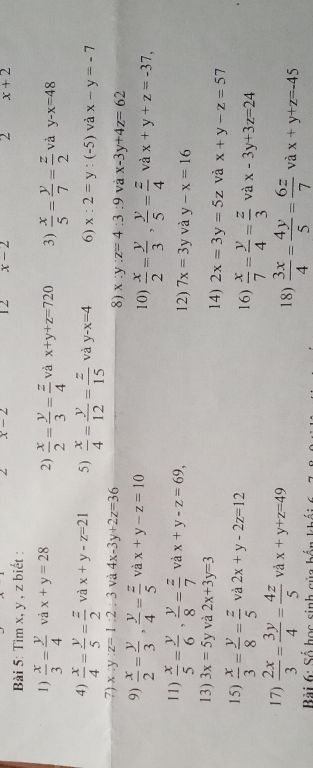 2 x - 2 12 x - 2 2 x + 2
Bài 5: Tìm x, y, z biết :
1) x/3 = y/4 và x + y = 28 2) x/2 = y/3 = z/4 và x+y+z=720 3) x/5 = y/7 = z/2 và y-x=48
4) x/4 = y/5 = z/2 và x + y - z=21 5) x/4 = y/12 = z/15 và y-x=4 6) x : 2 = y : (-5) và x – y = - 7
7) x :y :z= 1 :2 : 3 và 4x-3y+2z=36 8) x :y :z= 4 :3 :9 và x-3y+4z= 62
9) x/2 = y/3 , y/4 = z/5 và x + y – z = 10 10) x/2 = y/3 , y/5 = z/4 và x + y + z = -37,
11) x/5 = y/6 , y/8 = z/7 và x + y - z = 69, 12) 7x = 3y và y – x = 16
13) 3x = 5y và 2x+3y=3 14) 2x = 3y = 5z và x + y – z = 57
15) x/3 = y/8 = z/5 và 2x + y - 2z=12 16) x/7 = y/4 = z/3 và x - 3y+3z=24
17) 2x/3 = 3y/4 = 4z/5 và x + y+z=49 18) 3x/4 = 4y/5 = 6z/7 và x + y+z=-45
Bài 6: Số học sinh của bốn khối 6